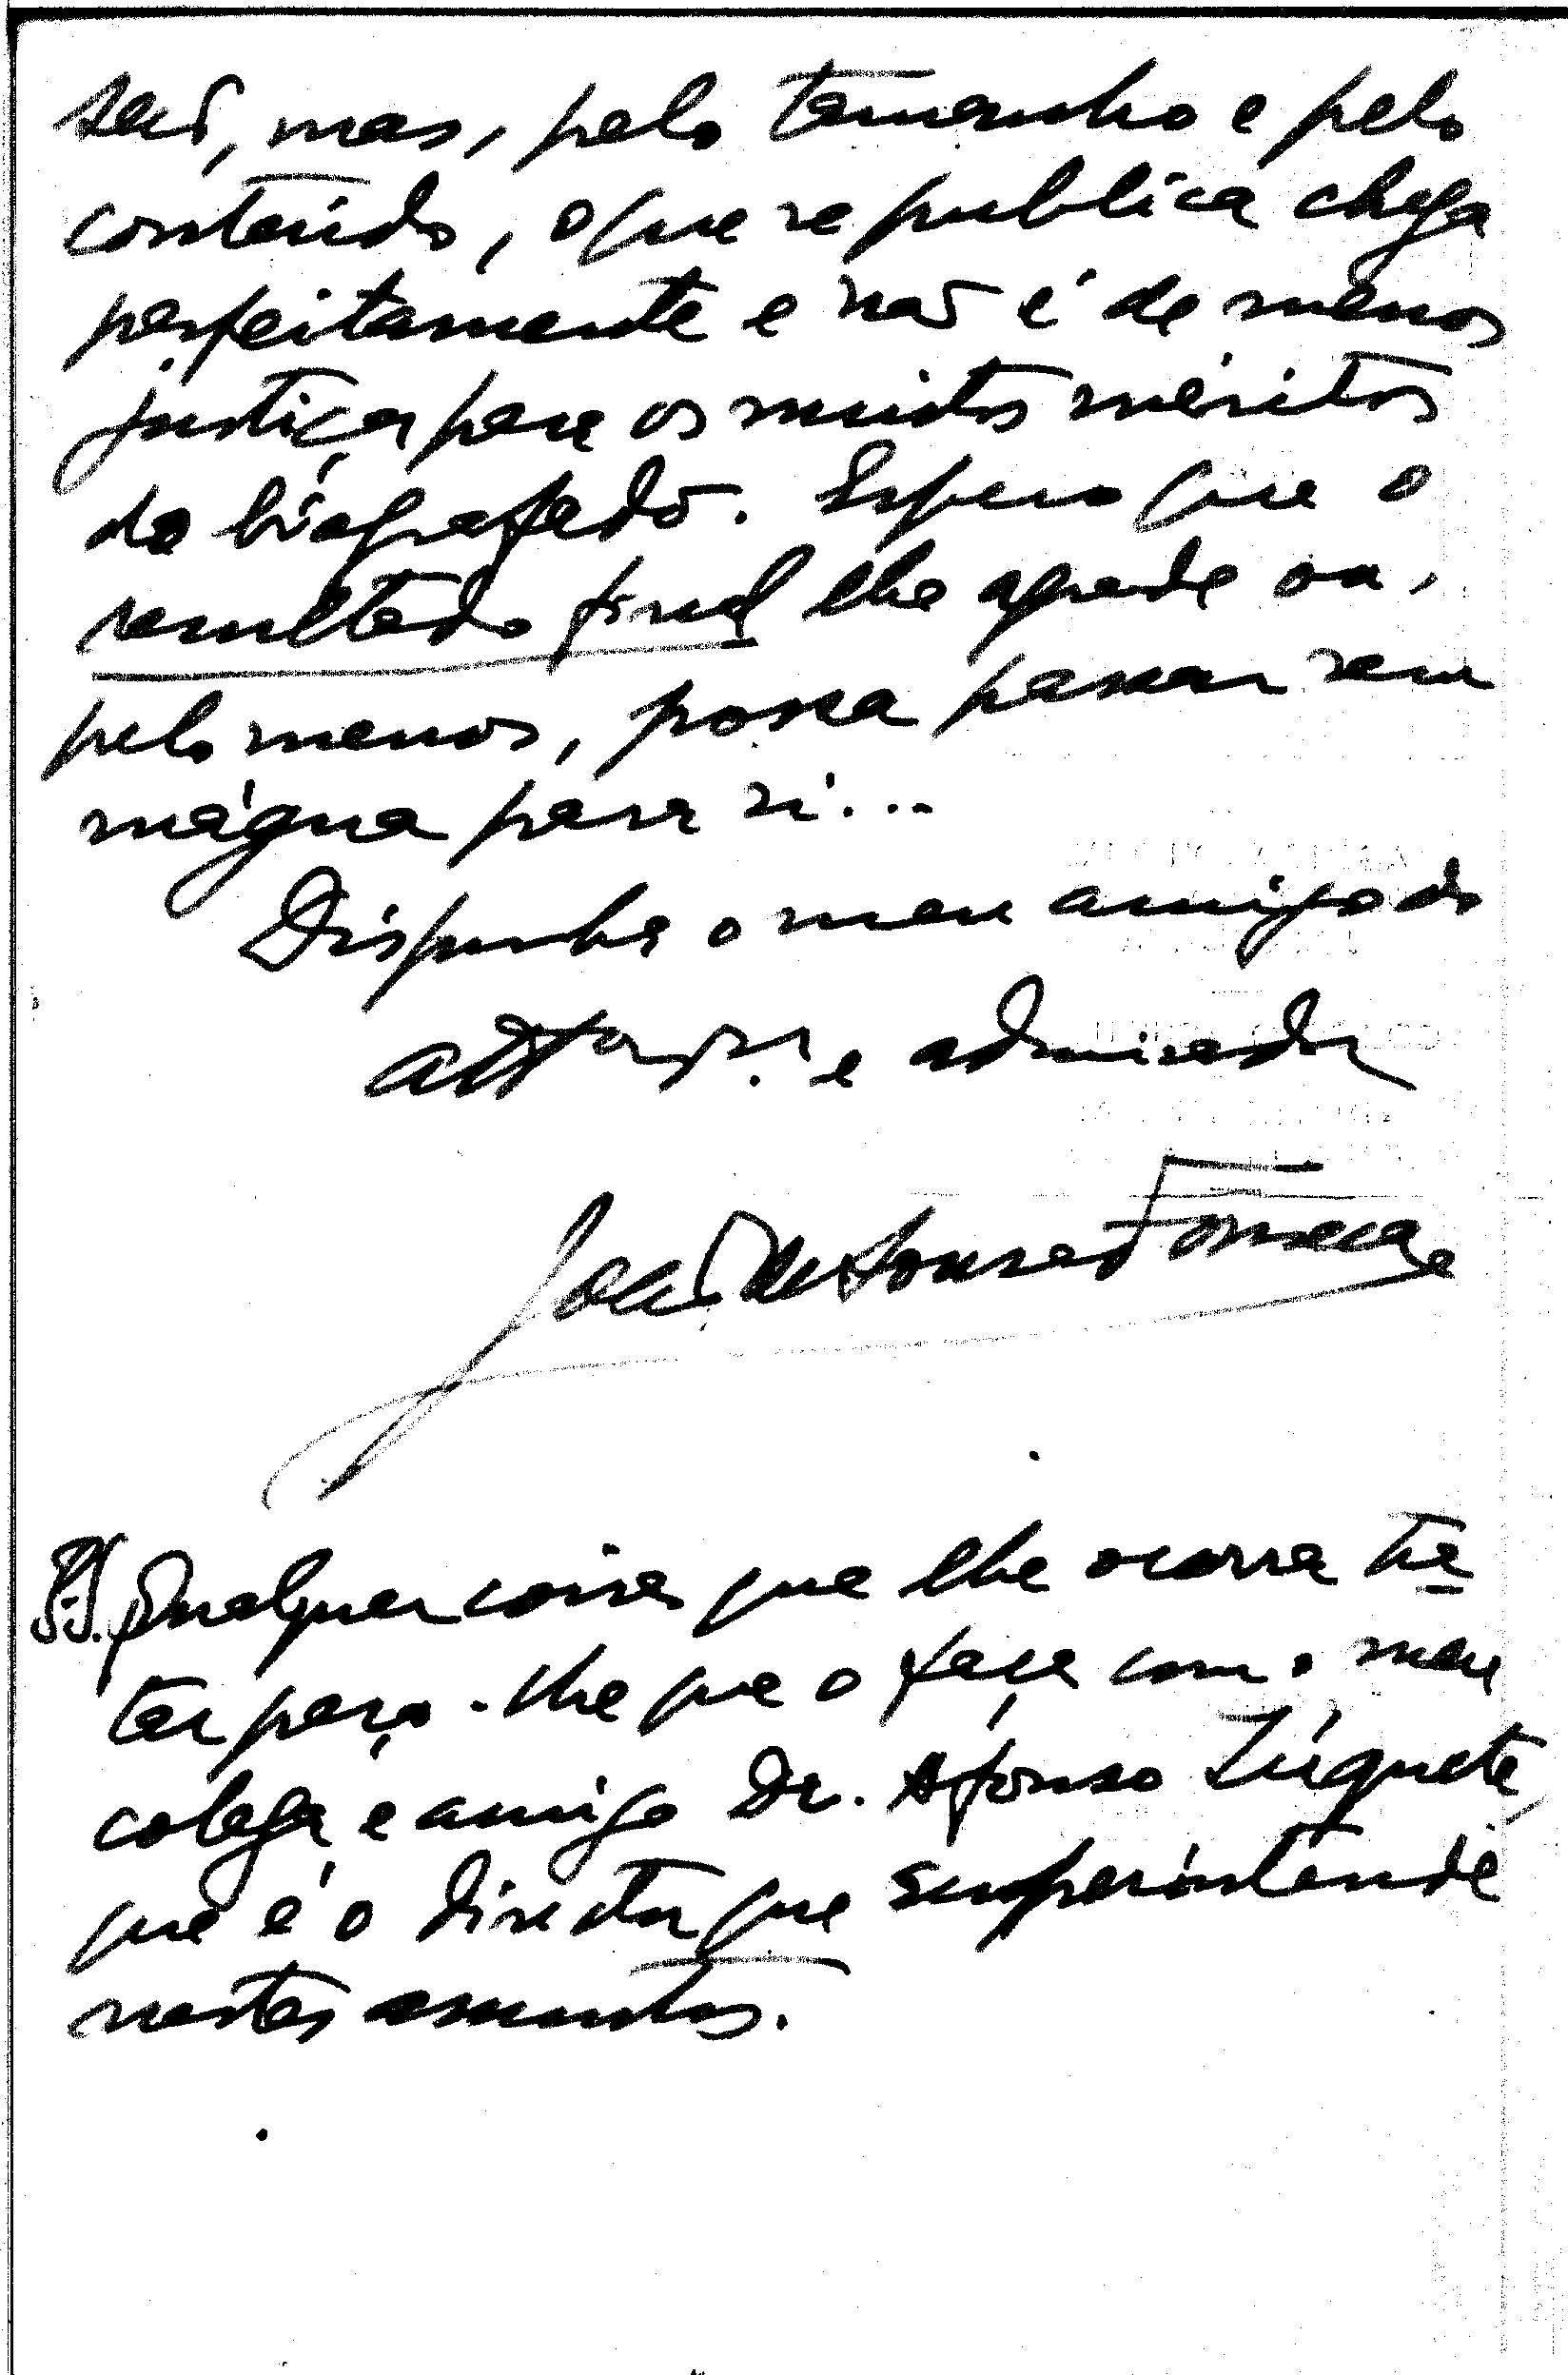 são, mas, pelo tamanho e pelo
conteúdo, o que se publica chega
perfeitamente e não é de menos
justiça para os muitos méritos
do biografado. Espero que o
resultado final lhe agrade ou,
pelo menos, possa passar sem
mágua para si...
Disponha o meu amigo do
e admirador
João de Sousa Fonseca
P.S. Qualquer coisa que lhe ocorra tra
tar peço-lhe que o faça com o meu
colega e amigo Dr. Afonso Zúquete,
que é o director que superintende
nestes assuntos.